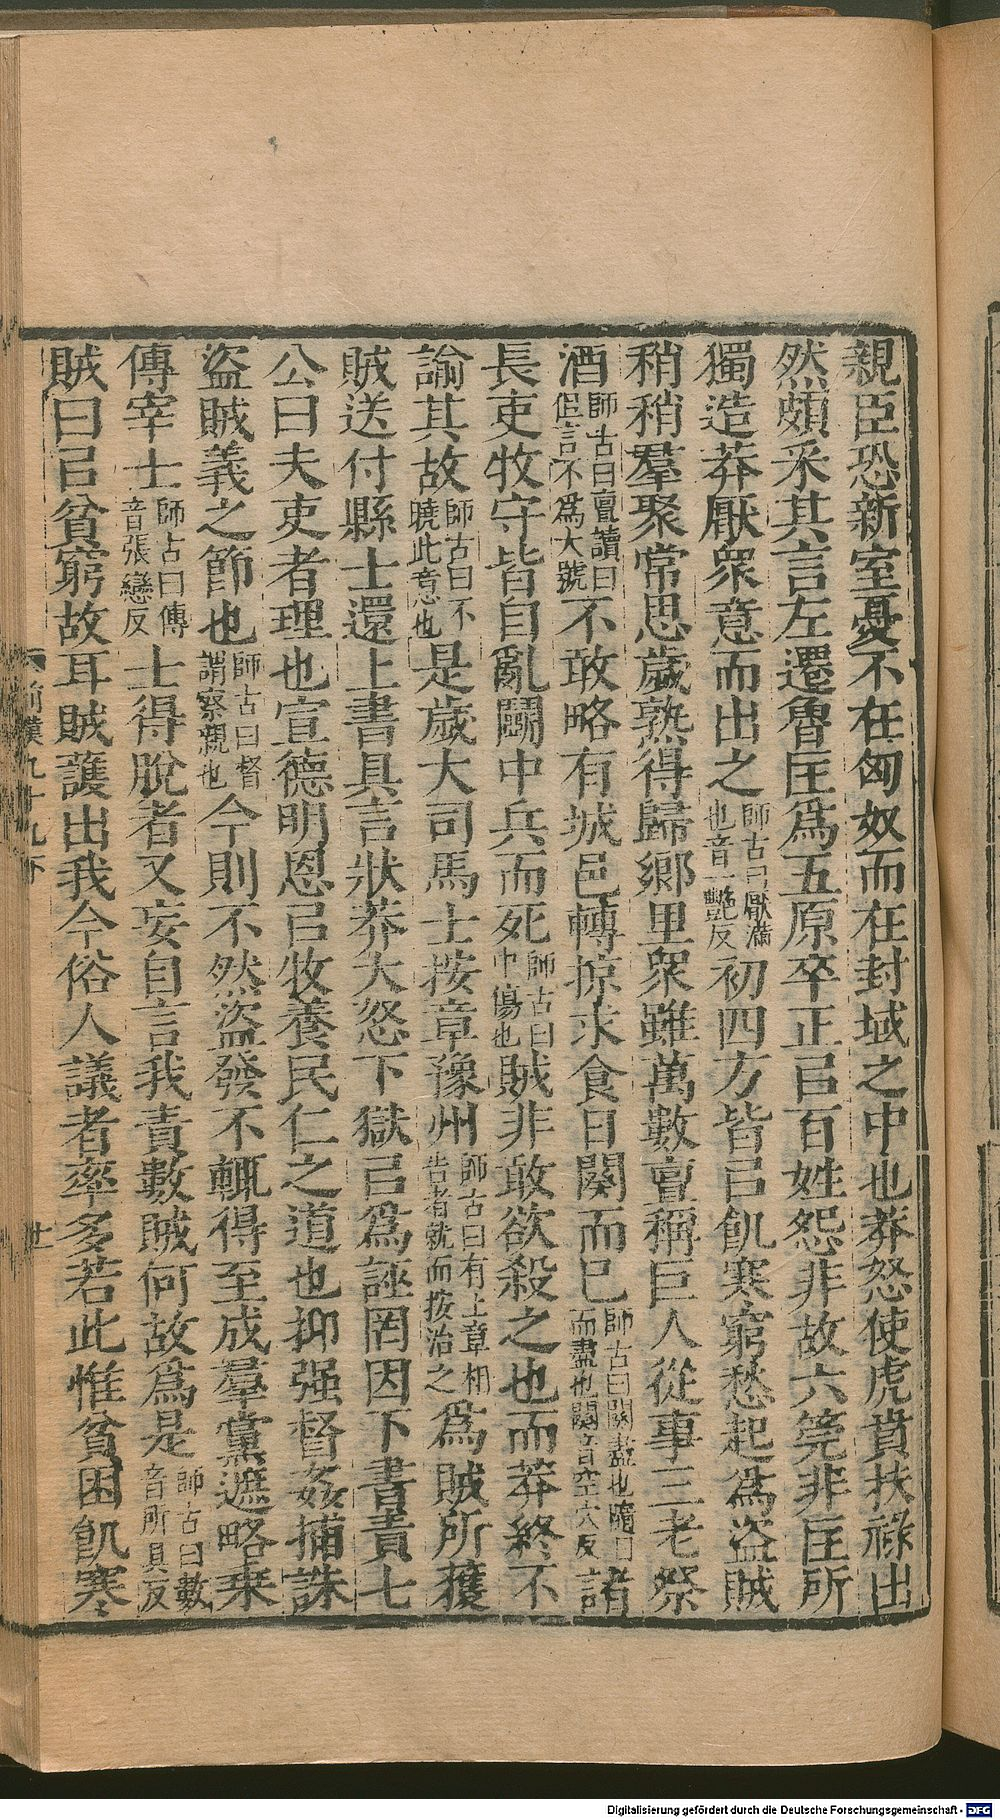 親臣恐新室憂不在匈奴而在封域之中也莽怒使虎賁扶祿出
然頗采其言左遷魯匡爲五原卒正㠯百姓怨非故六筦非匡所
獨造莽厭衆意而出之師古曰厭滿也音一豔反初四方皆㠯飢寒窮愁起爲盜賊
稍稍羣聚常思歲熟得歸鄉里衆雖萬數亶稱巨人從事三老祭
酒師古曰亶讀曰但言不爲大號不敢略有城邑轉掠求食日闋而已師古曰闋盡也隨日而盡也闋音空穴反諸
長吏牧守皆自亂鬭中兵而死師古曰中傷也賊非敢欲殺之也而莽終不
諭其故師古曰不曉此意也是歲大司馬士按章豫州師古曰有上章相告者就而按治之爲賊所獲
賊送付縣士還上書具言狀莽大怒下獄㠯爲誣罔因下書責七
公曰夫吏者理也宣德明恩㠯牧養民仁之道也抑强督姦捕誅
盜賊義之節也師古曰督謂察視也今則不然盜發不輒得至成羣黨遮略乗
傳宰士師古曰傳音張戀反士得脫者又妄自言我責數賊何故爲是師古曰數音所具反
賊曰㠯貧窮故耳賊護出我今俗人議者率多若此惟貧困飢寒
前漢九十九下
廿一
Digitalisierung gefördert durch die Deutsche Forschungsgemeinschaft - DFG